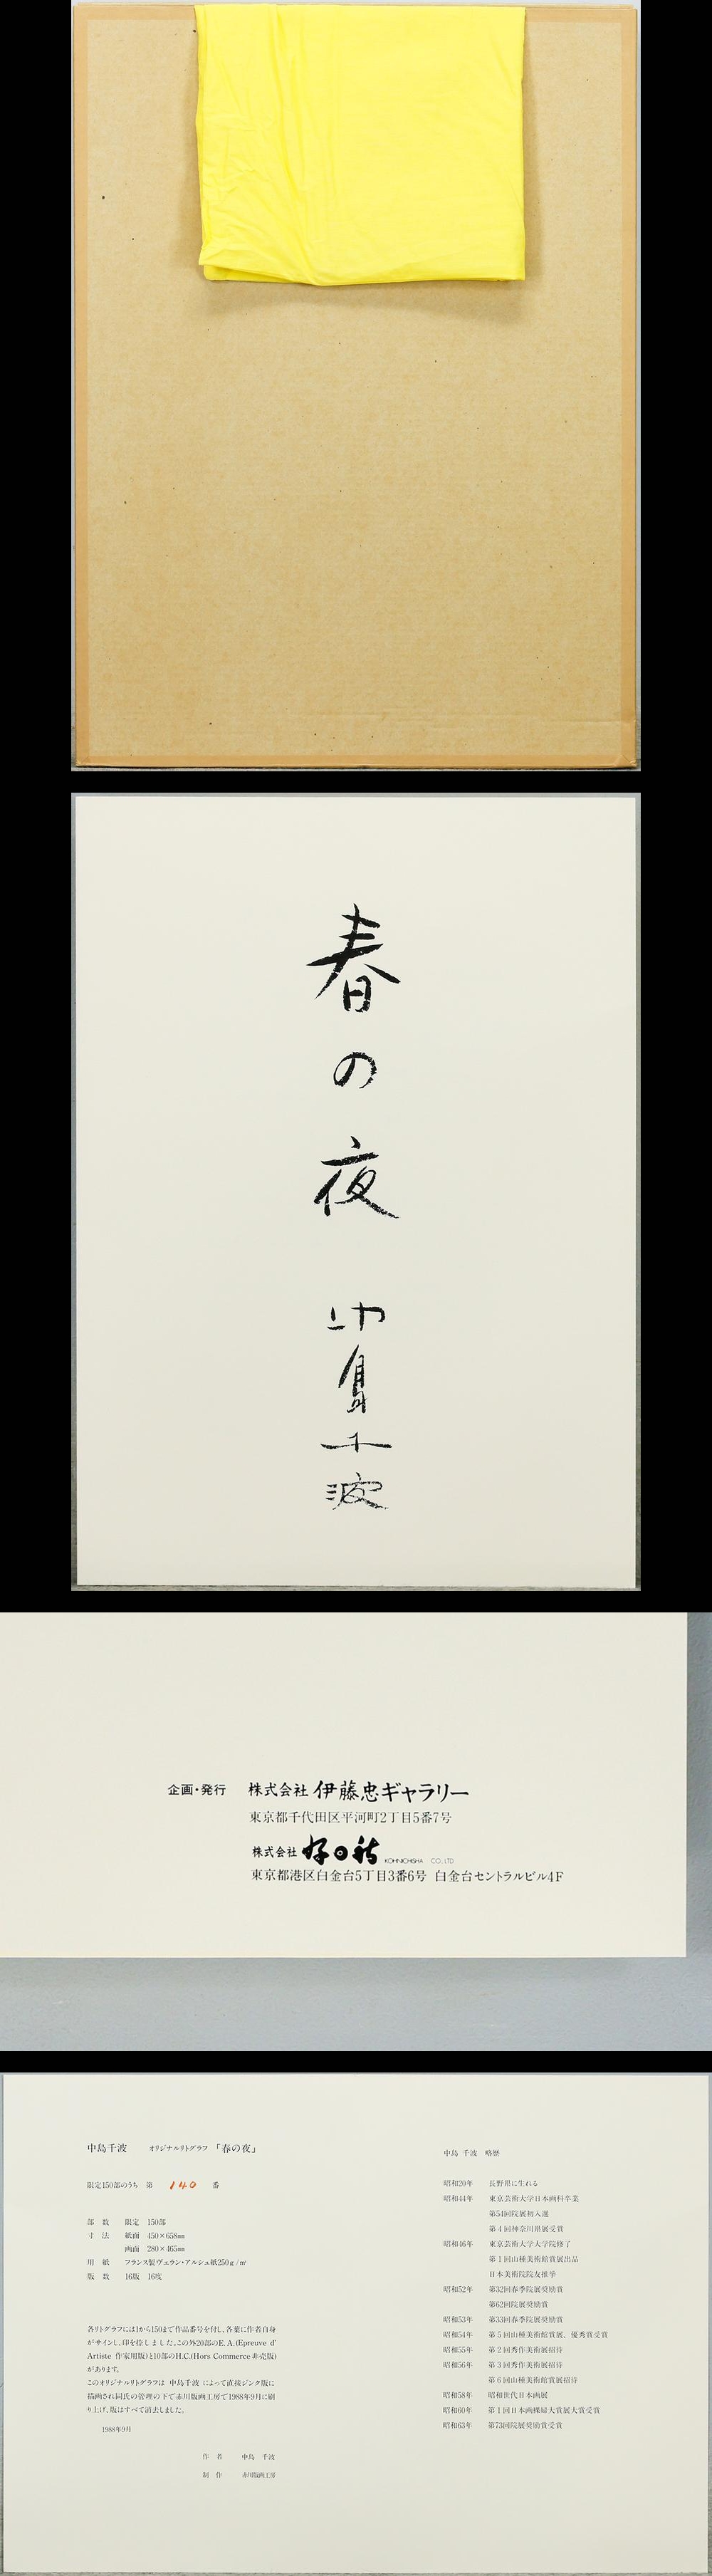 春の夜
中島千波
企画・発行 株式会社 伊藤忠ギャラリー
東京都千代田区平河町2丁目5番7号
株式会社 好日社 KOHNICHISHA CO., LTD
東京都港区白金台5丁目3番6号 白金台セントラルビル4F
中島千波 オリジナルリトグラフ 「春の夜」
限定150部のうち 第 140 番
部 数 限定 150部
寸 法 紙面 450×658㎜
画面 280×465㎜
用 紙 フランス製ヴェラン・アルシュ紙250g/㎡
版 数 16版 16度
各リトグラフには1から150まで作品番号を付し、各葉に作者自身
がサインし、印を捺しました。この外20部のE. A.(Epreuve d'
Artiste 作家用版)と10部のH.C.(Hors Commerce 非売版)
があります。
このオリジナルリトグラフは 中島千波 によって直接ジンク版に
描画され同氏の管理の下で赤川版画工房で1988年9月に刷
り上げ、版はすべて消去しました。
1988年9月
作 者 中島 千波
制 作 赤川版画工房
中島 千波 略歴
昭和20年 長野県に生れる
昭和44年 東京芸術大学日本画科卒業
第54回院展初入選
第4回神奈川県展受賞
昭和46年 東京芸術大学大学院修了
第1回山種美術館賞展出品
日本美術院院友推挙
昭和52年 第32回春季院展奨励賞
第62回院展奨励賞
昭和53年 第33回春季院展奨励賞
昭和54年 第5回山種美術館賞展、優秀賞受賞
昭和55年 第2回秀作美術展招待
昭和56年 第3回秀作美術展招待
第6回山種美術館賞展招待
昭和58年 昭和世代日本画展
昭和60年 第1回日本画裸婦大賞展大賞受賞
昭和63年 第73回院展奨励賞受賞